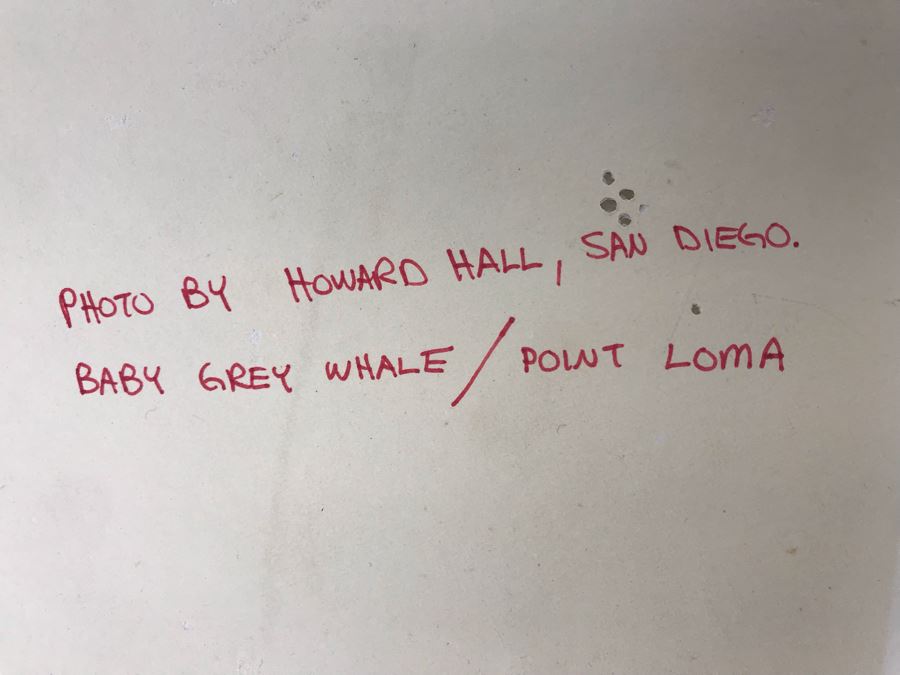 PHOTO BY HOWARD HALL, SAN DIEGO.
BABY GREY WHALE / POINT LOMA